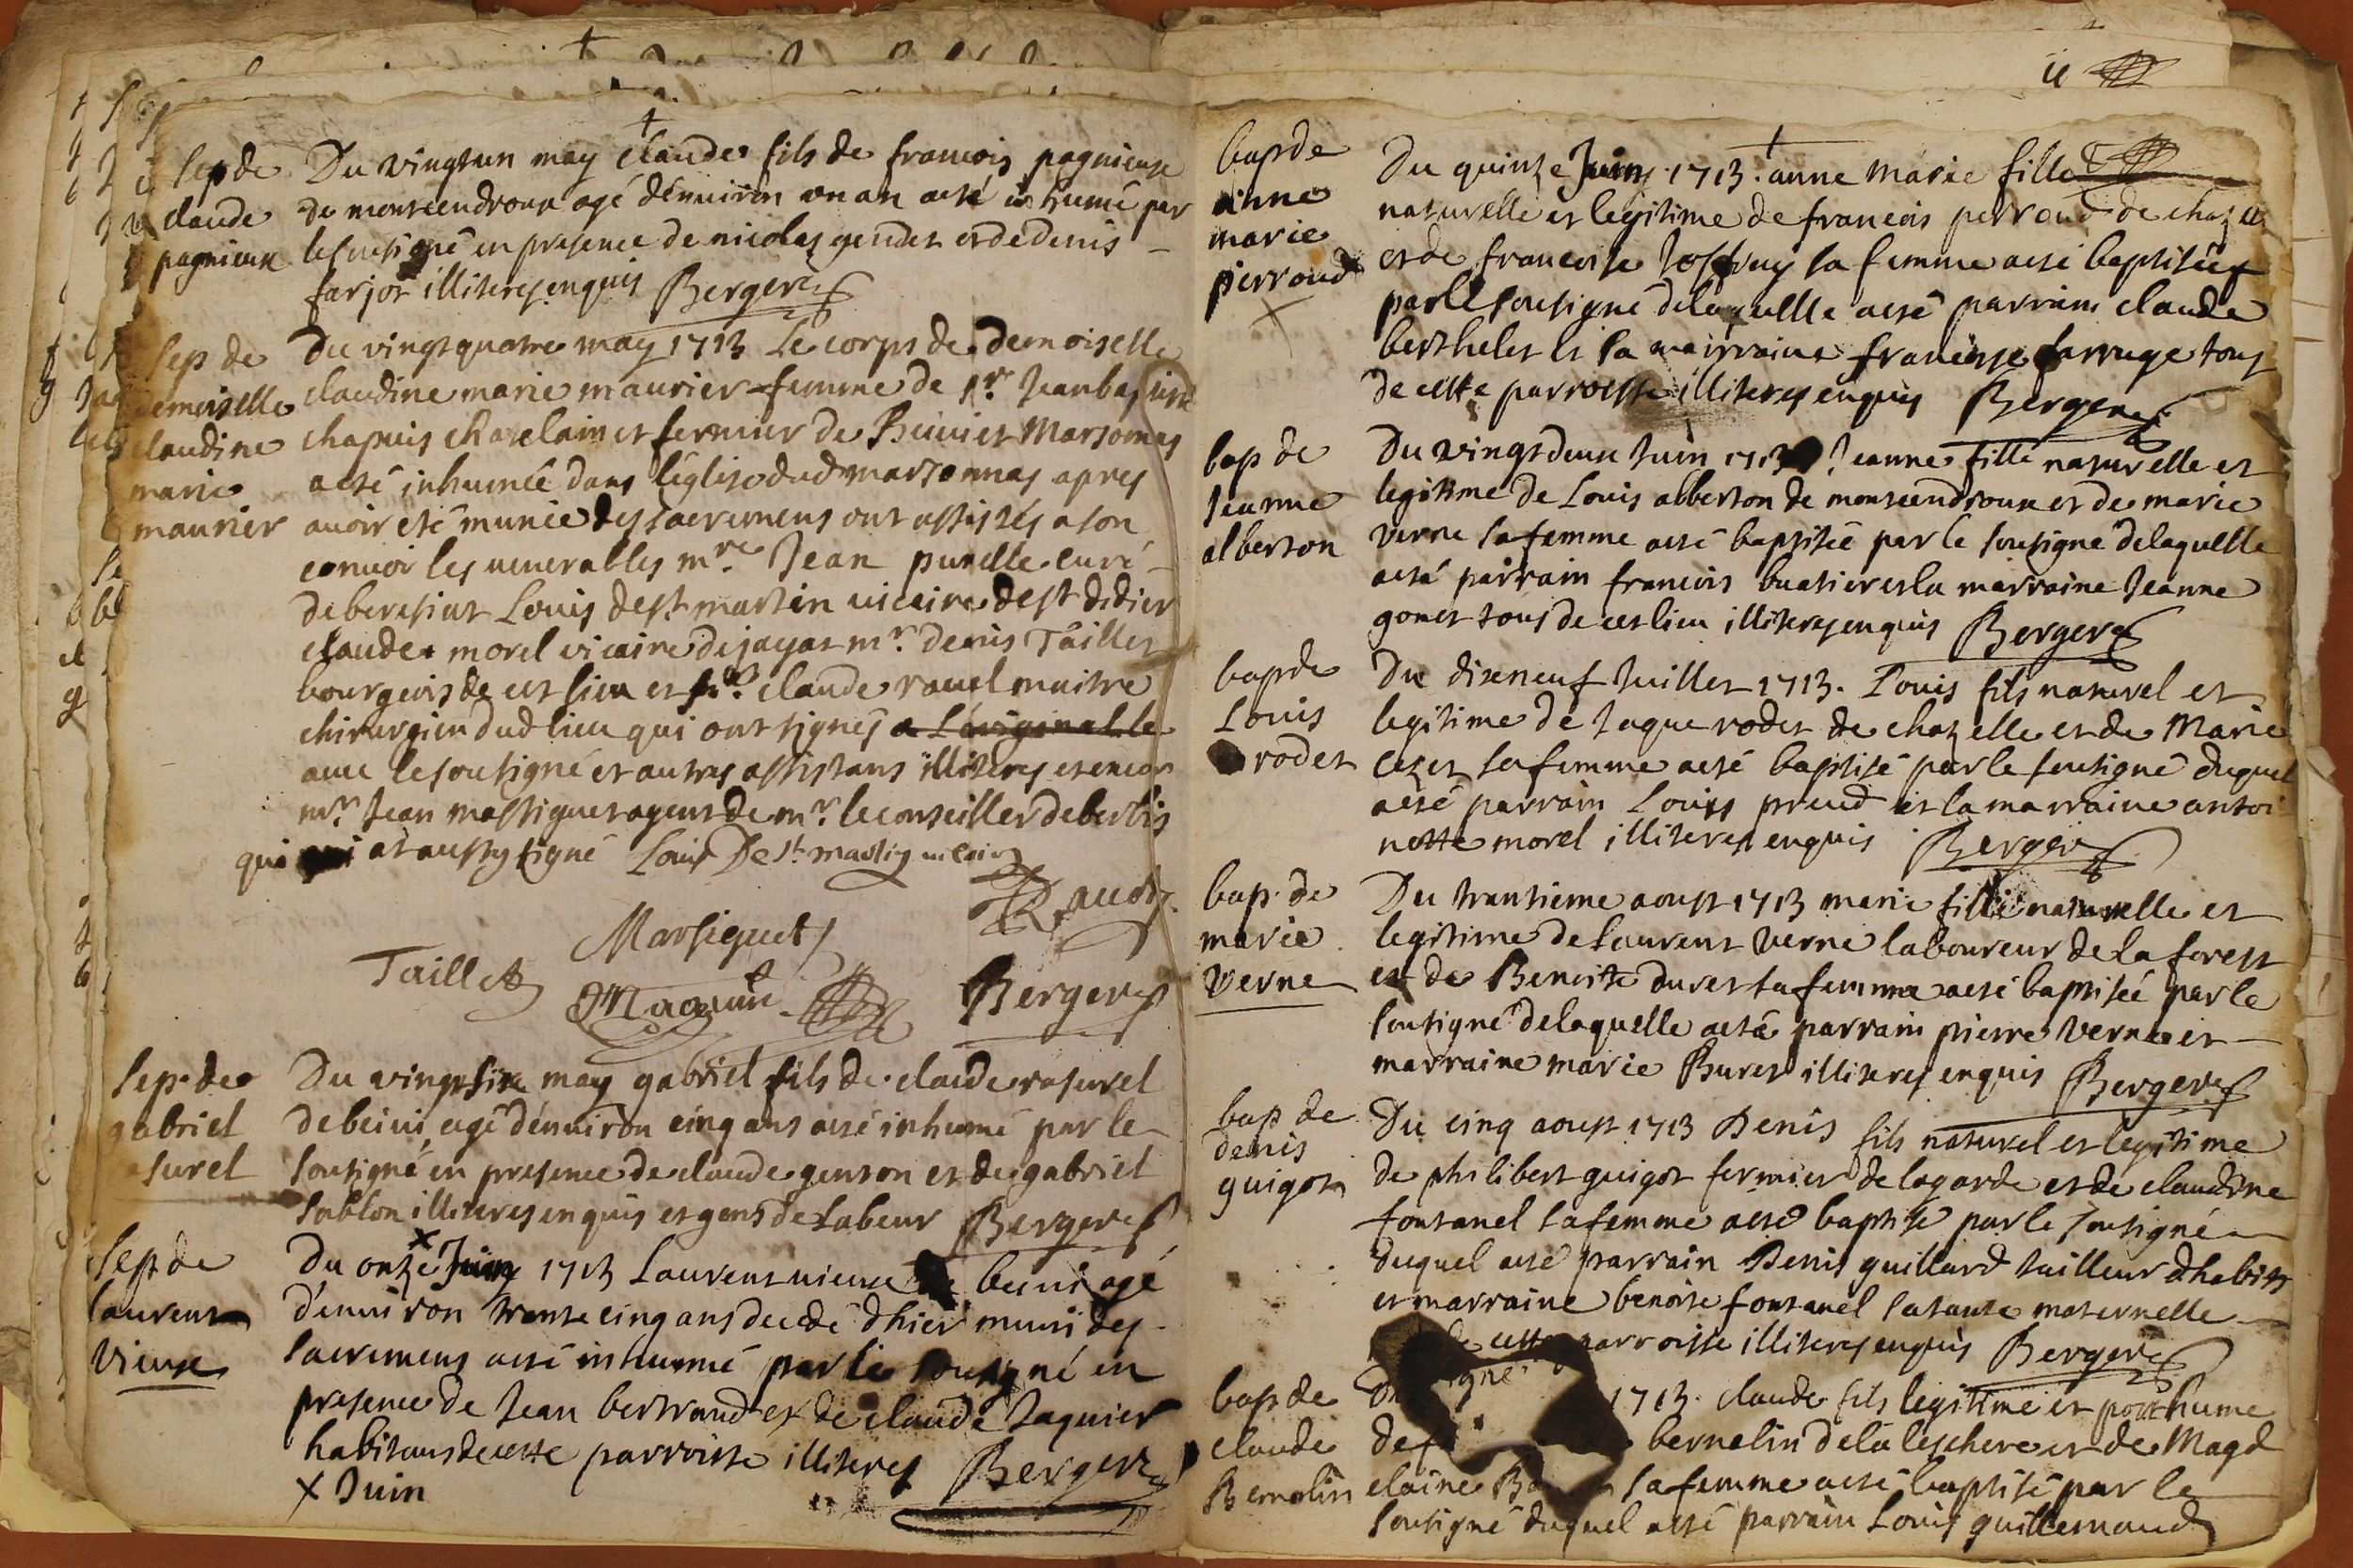 Sep de
claude
pagnieux
Du vingtun may claude fils de francois pagnieux
de montcendroux agé dénuiron un an aeté inhumé par
le soutigné en presence de nicolas gender et de denis
farjot illiteres enquis Bergere
Sep de
demoiselle
claudine
marie
maurier
Du vingtquatre may 1713 Le corps de demoiselle
claudine marie maurier femme de Sr. Jean baptiste
chapuis chatelain et fermier de Beuui et Marsonnas
aeté inhumée dans léglise dud marsonnas apres
auoir eté munie des sacremens ont assistés a son
conuoi les uenerables mre. Jean purelle curé
de beresiat Louis de st martin uicaire de st didier
claude morel vicaire de jayat mr. denis Tailler
bourgeois de cet lieu et claude rauel maitre
chirurgien dud lieu qui ont signés a l'original le
auec le soutigné et autres assistans illiteres et encor
mr. Jean massiguet agent de mr. le conseiller de berbis
qui at aussy signé Louis De st. martin uicaire
Marsiguet
Taillet
Bergere
Sep. de
gabriel
Du vingtsix may gabriel fils de claude rasurel
de beuui agé dénuiron cinq ans aeté inhumé par le
soutigné en presence de claude genton et de gabriel
sablon illiteres enquis et gens de Labeur Bergere
Sep de
laurent
Vieux
Du onze Juin 1713 Laurent uieux de beuui agé
d'enuiron trente cinq ans decedé d hier muni des
sacremens aeté inhumé par le soutigné en
presence de Jean bertrand et de claude Jaquier
habitans de cette parroisse illiteres Bergere
x Juin
11
bap de
anne
marie
perroud
Du quinze Juin 1713. anne marie fille
naturelle et legitime de francois perroud de chaz
et de francoise sa femme aeté baptisée
par le soutigné de laquelle aeté parrain claude
berthelet et la marraine francoise farruge tous
de cette parroisse illiteres enquis Bergere
bap de
Jeanne
alberton
Du vingtdeux Juin 1713 Jeanne fille naturelle et
legitime de Louis alberton de montcendroux et de marie
verne sa femme aeté baptisée par le soutigné de laquelle
aeté parrain francois buatier et la marraine Jeanne
gonet tous de cet lieu illiteres enquis Bergere
bap de
Louis
rodet
Du dixneuf Juillet 1713. Louis fils naturel et
legitime de Jaque rodet de chazelle et de Marie
sa femme aeté baptisé par le soutigné duquel
aeté parrain Louis prud et la marraine antoi
nette morel illiteres enquis Bergere
bap. de
marie
verne
Du trantieme aoust 1713 marie fille naturelle et
legitime de Laurent verne laboureur de la forest
et de Benoite duret sa femme aeté baptisée par le
soutigné de laquelle aeté parrain pierre verne et
marraine marie Buret illiteres enquis Bergere
bap de
denis
guigot
Du cinq aoust 1713 Denis fils naturel et legitime
de philibert guigot fermier de lagarde et de claudine
fontanel sa femme aeté baptisé par le soutigné
duquel aeté parrain Denis guillard tailleur dhabits
et marraine benoite fontanel sa tante maternelle
de cette parroisse illiteres enquis Bergere
bap de
claude
Bernolin
1713. claude fils legitime et posthume
bernelin de la leschere et de Magd
elaine sa femme aeté baptisé par le
soutigné duquel aeté parrain Louis guillemaud